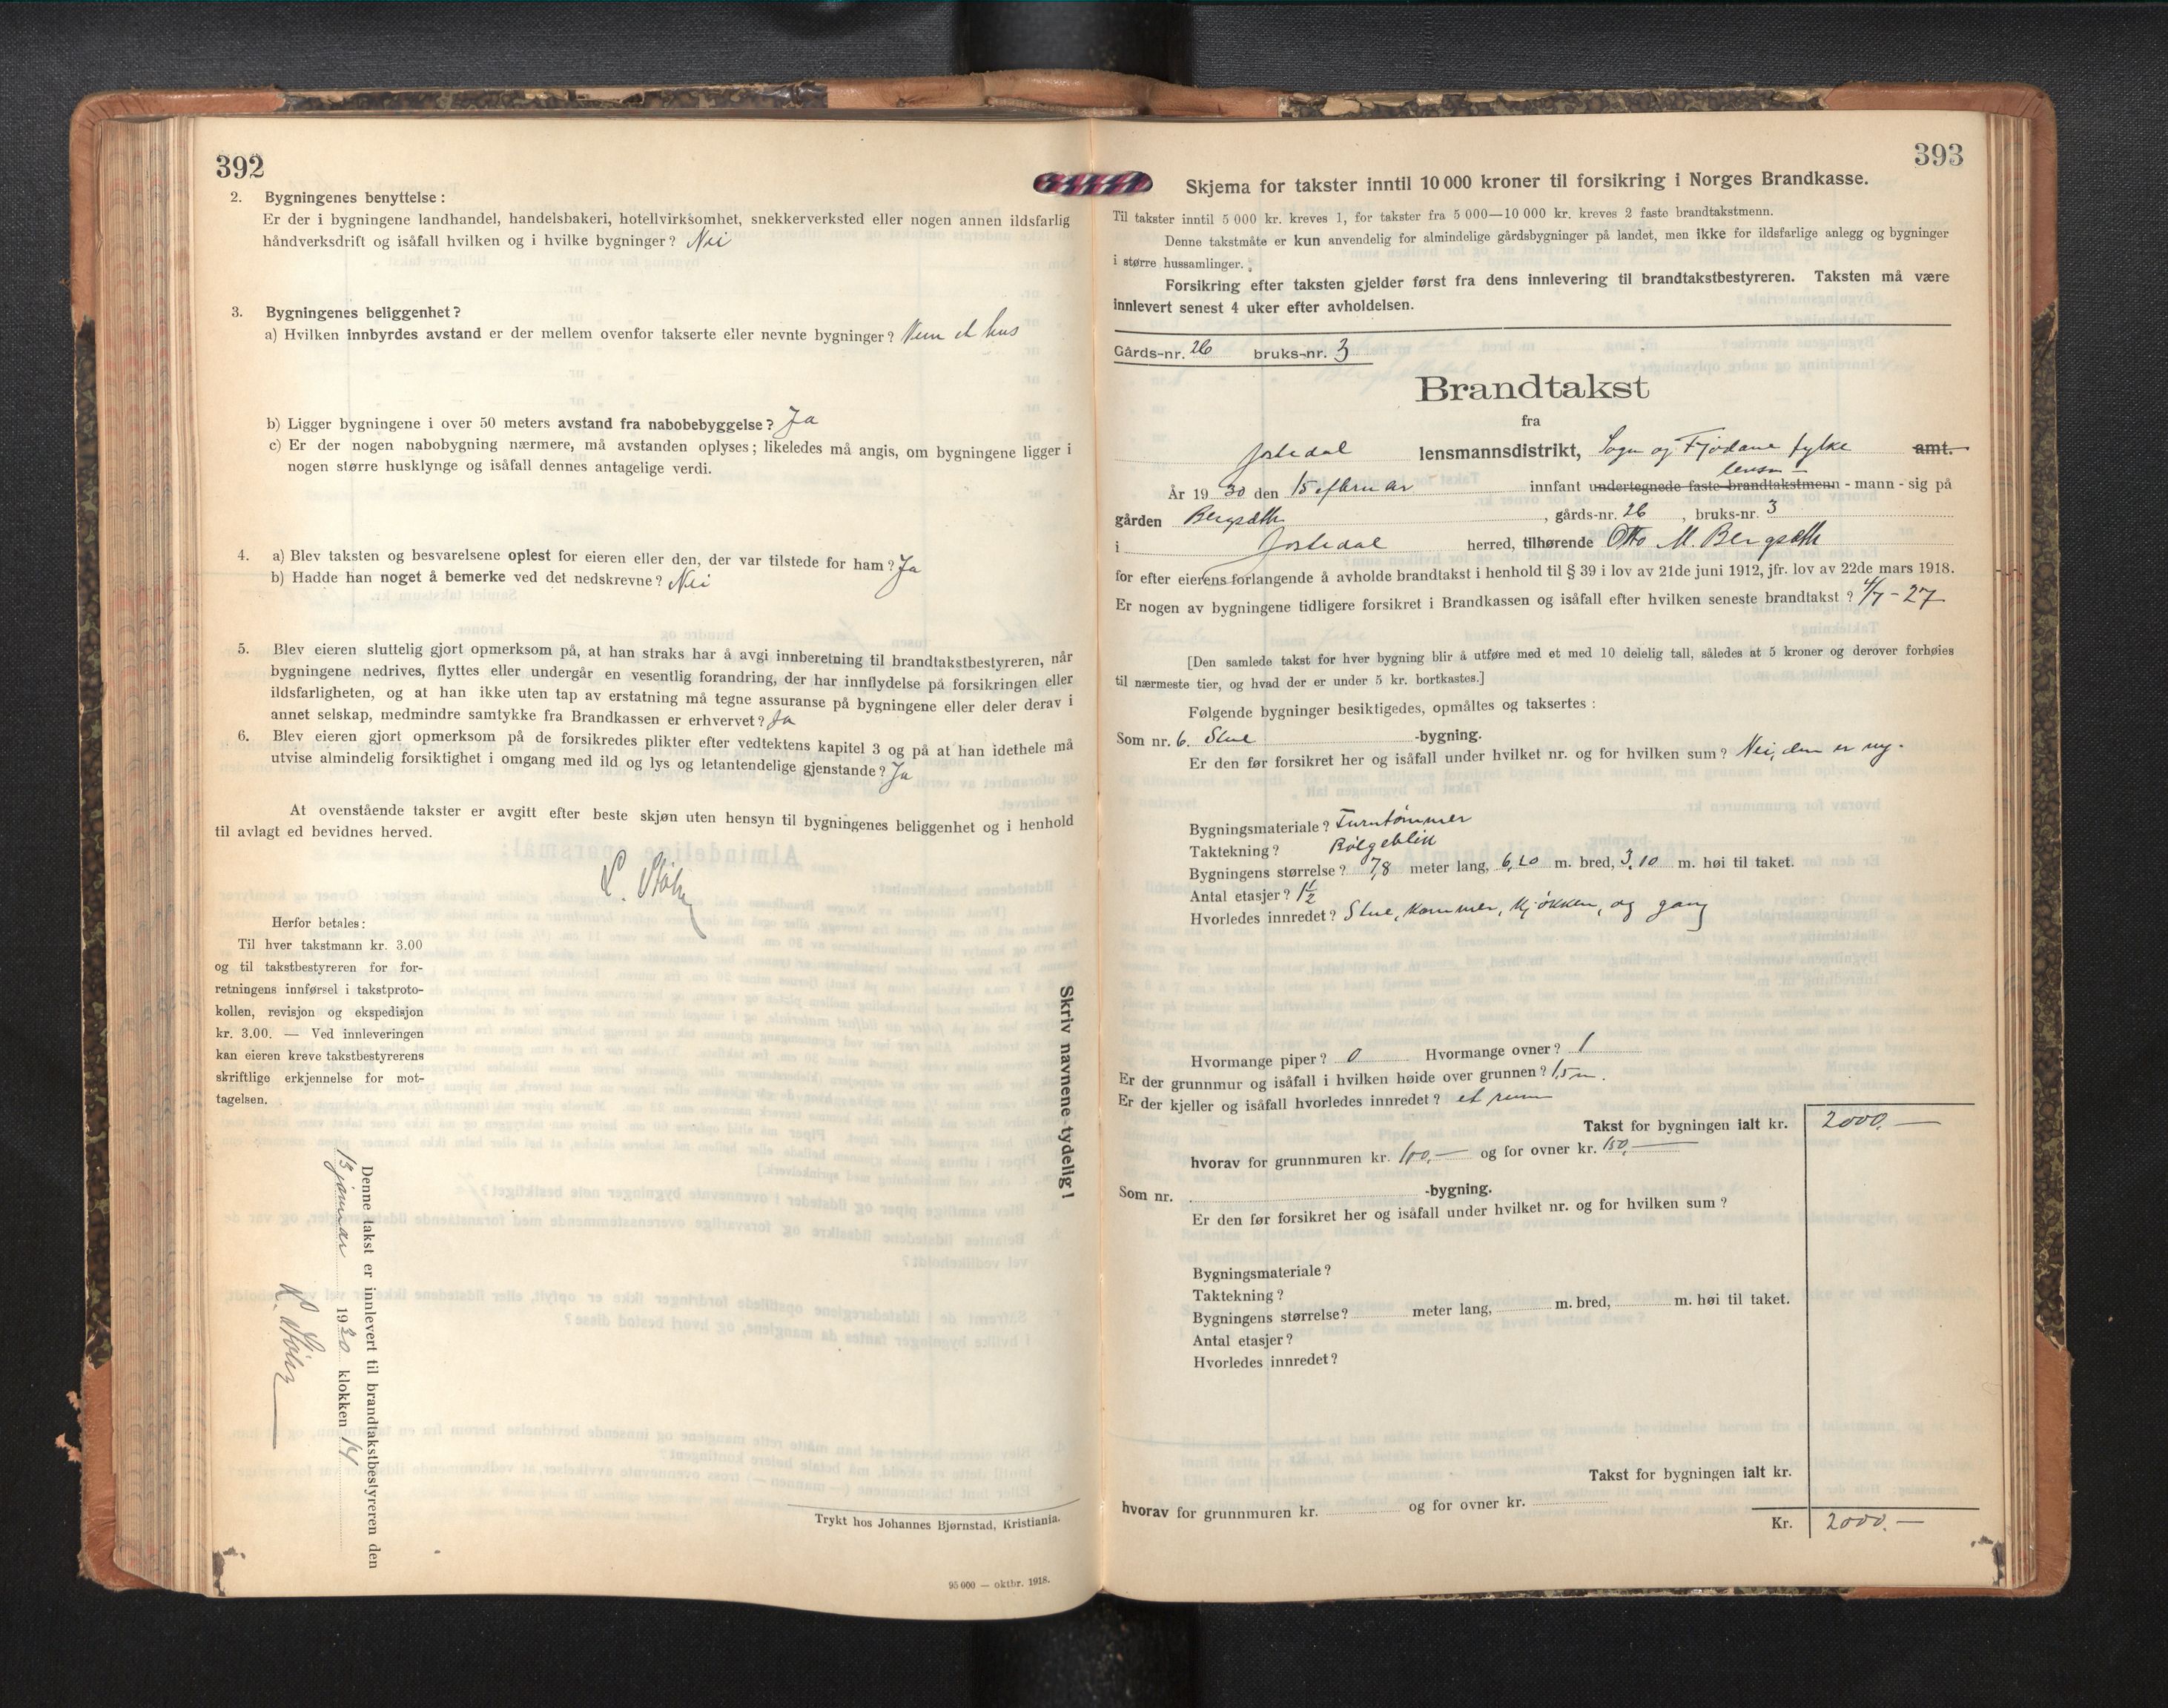 392
2. Bygningenes benyttelse:
Er der i bygningene landhandel, handelsbakeri, hotellvirksomhet, snekkerverksted eller nogen annen ildsfarlig
håndverksdrift og isåfall hvilken og i hvilke bygninger? Nei
3. Bygningenes beliggenhet?
a) Hvilken innbyrdes avstand er der mellem ovenfor takserte eller nevnte bygninger? Kun et hus
b) Ligger bygningene i over 50 meters avstand fra nabobebyggelse? Ja
c) Er der nogen nabobygning nærmere, må avstanden oplyses; likeledes må angis, om bygningene ligger i
nogen større husklynge og isåfall dennes antagelige verdi.
4. a) Blev taksten og besvarelsene oplest for eieren eller den, der var tilstede for ham? Ja
b) Hadde han noget å bemerke ved det nedskrevne? Nei
5. Blev eieren sluttelig gjort opmerksom på, at han straks har å avgi innberetning til brandtakstbestyreren, når
bygningene nedrives, flyttes eller undergår en vesentlig forandring, der har innflydelse på forsikringen eller
ildsfarligheten, og at han ikke uten tap av erstatning må tegne assuranse på bygningene eller deler derav i
annet selskap, medmindre samtykke fra Brandkassen er erhvervet? Ja
6. Blev eieren gjort opmerksom på de forsikredes plikter efter vedtektens kapitel 3 og på at han idethele må
utvise almindelig forsiktighet i omgang med ild og lys og letantendelige gjenstande? Ja
At ovenstående takster er avgitt efter beste skjøn uten hensyn til bygningenes beliggenhet og i henhold
til avlagt ed bevidnes herved.
Herfor betales:
Til hver takstmann kr. 3.00
og til takstbestyreren for for-
retningens innførsel i takstproto-
kollen, revisjon og ekspedisjon
kr. 3.00. — Ved innleveringen
kan eieren kreve takstbestyrerens
skriftlige erkjennelse for mot-
tagelsen.
Skriv navnene tydelig!
Denne takst er innlevert til brandtakstbestyreren den
13 januar 1930 klokken 14
Trykt hos Johannes Bjørnstad, Kristiania.
95 000 — oktbr. 1918.
393
Skjema for takster inntil 10 000 kroner til forsikring i Norges Brandkasse.
Til takster inntil 5 000 kr. kreves 1, for takster fra 5 000—10 000 kr. kreves 2 faste brandtakstmenn.
Denne takstmåte er kun anvendelig for almindelige gårdsbygninger på landet, men ikke for ildsfarlige anlegg og bygninger
i større hussamlinger.
Forsikring efter taksten gjelder først fra dens innlevering til brandtakstbestyreren. Taksten må være
innlevert senest 4 uker efter avholdelsen.
Gårds-nr. 26 bruks-nr. 3
Brandtakst
fra
Jostedal lensmannsdistrikt, Sogn og Fjordane fylke amt.
lensm —
År 1930 den 15 februar innfant undertegnede faste brandtakstmenn - mann - sig på
gården Bergseth, gårds-nr. 26, bruks-nr. 3
i Jostedal herred, tilhørende Otto M. Bergseth
for efter eierens forlangende å avholde brandtakst i henhold til § 39 i lov av 21de juni 1912, jfr. lov av 22de mars 1918.
Er nogen av bygningene tidligere forsikret i Brandkassen og isåfall efter hvilken seneste brandtakst? 4/7 - 27
[Den samlede takst for hver bygning blir å utføre med et med 10 delelig tall, således at 5 kroner og derover forhøies
til nærmeste tier, og hvad der er under 5 kr. bortkastes.]
Følgende bygninger besiktigedes, opmåltes og taksertes:
Som nr. 6. Stue -bygning.
Er den før forsikret her og isåfall under hvilket nr. og for hvilken sum? Nei, den er ny.
Bygningsmateriale? Furutømmer
Taktekning? Bølgeblik
Bygningens størrelse? 7,8 meter lang, 6,20 m. bred, 3,10 m. høi til taket.
Antal etasjer? 1½
Hvorledes innredet? Stue, kammer, kjøkken, og gang
Hvormange piper? 0 Hvormange ovner? 1
Er der grunnmur og isåfall i hvilken høide over grunnen? 1,5 m.
Er der kjeller og isåfall hvorledes innredet? et rum
Takst for bygningen ialt kr. 2000.—
hvorav for grunnmuren kr. 100,— og for ovner kr. 150,—
Som nr. -bygning.
Er den før forsikret her og isåfall under hvilket nr. og for hvilken sum?
Bygningsmateriale?
Taktekning?
Bygningens størrelse? meter lang, m. bred, m. høi til taket.
Antal etasjer?
Hvorledes innredet?
Takst for bygningen ialt kr.
hvorav for grunnmuren kr. og for ovner kr.
Kr. 2000.—